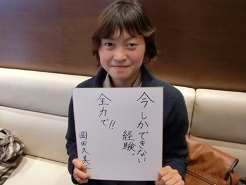 今しかできない
経験、
全力で!!
岡田久美子